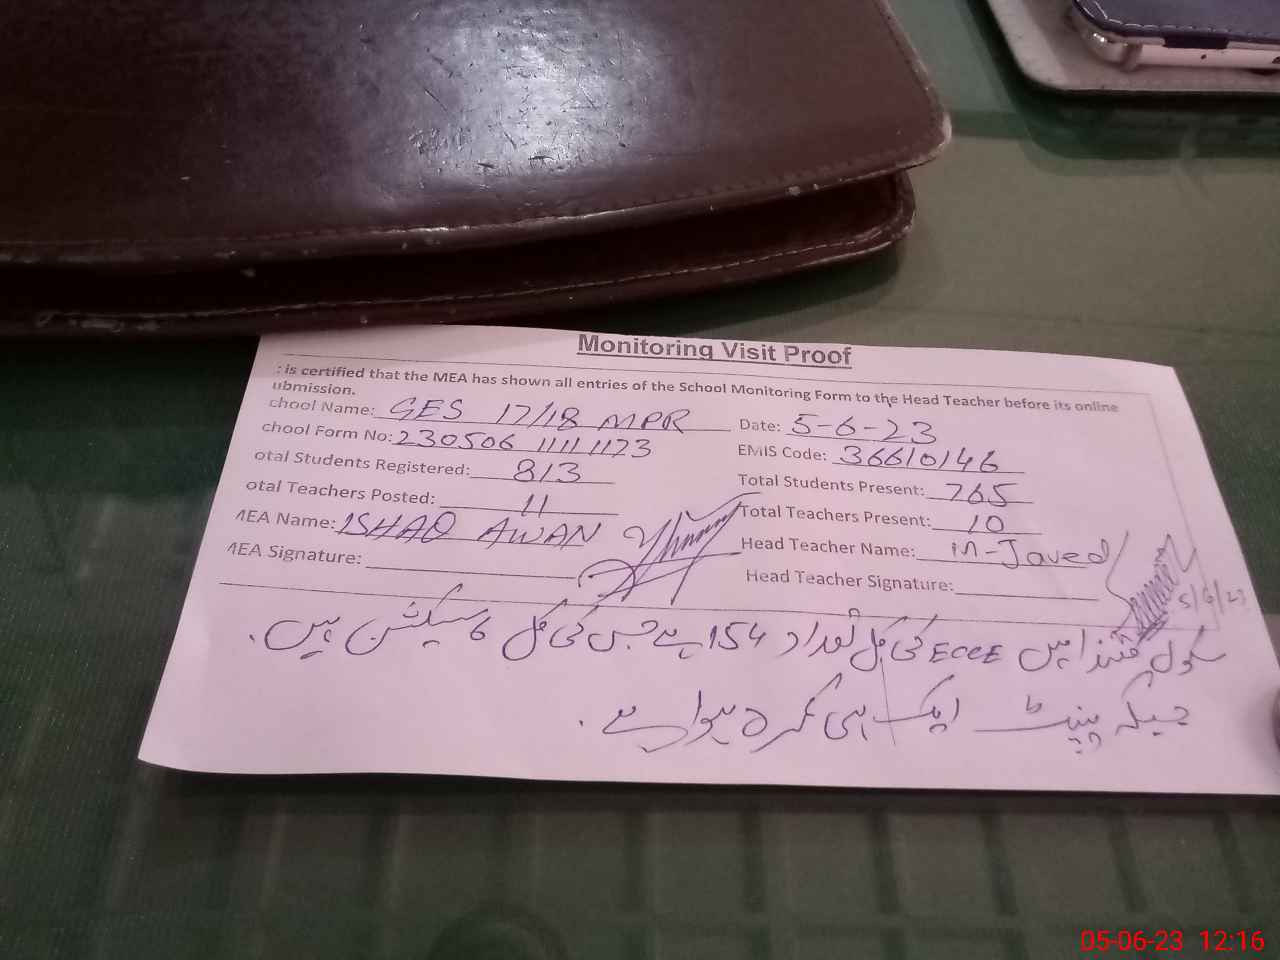 Monitoring Visit Proof
: is certified that the MEA has shown all entries of the School Monitoring Form to the Head Teacher before its online
ubmission.
chool Name: GES 17/18 MPR Date: 5-6-23
chool Form No: 230506 11111123 EMIS Code: 36610146
otal Students Registered: 813 Total Students Present: 765
otal Teachers Posted: 11 Total Teachers Present: 10
MEA Name: ISHAQ AWAN Head Teacher Name: m-Javed
MEA Signature: Head Teacher Signature:
5/6/23
سکول ھذا میں ECCE کی کل تعداد 154 ہے جس کی کل 6 سیکشن ہیں.
جبکہ پینٹ ایک ہی کمرہ ہوا ہے.
05-06-23 12:16